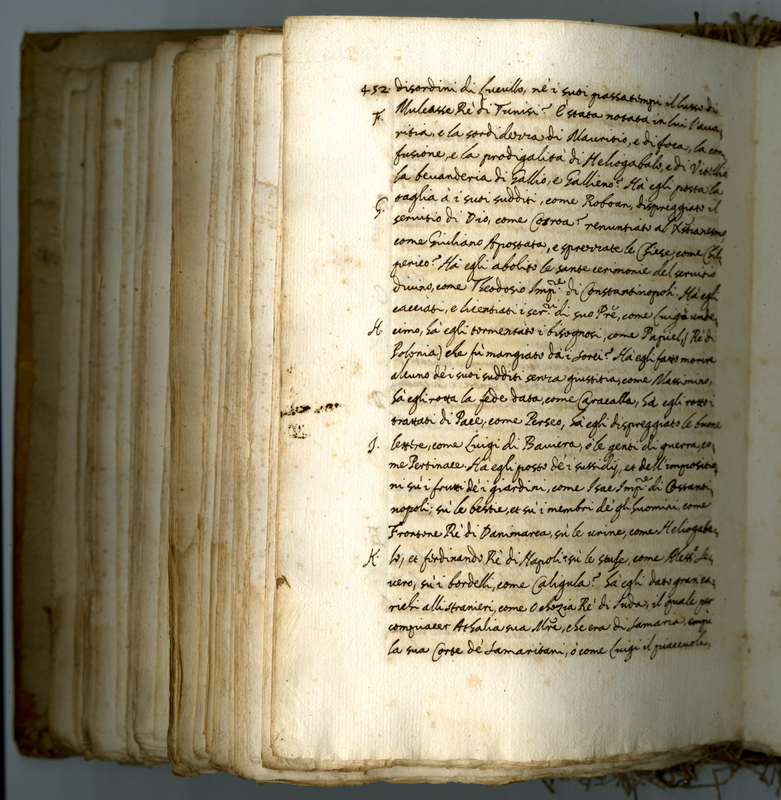 452. disordini di Lucullo, nè i suoi passatempi il lusso di
F. Muleasse Rè di Tunisi? È stata notata in lui l'aua,
ritia, e la sordidezza di Mauritio, e di foca, la con,
fusione, e la prodigalità di Heliogabalo, e di Vitellio
la beuanderia di Gallio, e Gallieno? Hà egli posta la
taglia à i suoi sudditi, come Roboan, dispreggiato il
G. seruitio di Dio, come Cosroa? renuntiato al Xp̃ianesmo,
come Giuliano Apostata, e sprezzate le Chiese, come Chil,
perico? Hà egli abolito le sante cerimonie del seruitio
diuino, come Theodosio Imp.re di Constantinopoli? Hà egli
cacciati, e licentiati i ser.ri di suo Prẽ, come Luigi unde,
H cimo, hà egli tormentato i bisognosi, come Re di
Polonia) che fù mangiato da i sorci? Hà egli fatto morire
alcuno de i suoi sudditi senza giustitia, come Massimino,
hà egli rotta la fede data, come Caracalla, hà egli rotti i
trattati di Pace, come Perseo, hà egli dispreggiato le buone
J. lettre, come Luigi di Bauiera, ò le genti di guerra, co,
me Pertinace? Hà egli posto de i sussidij, et dell'impositio,
ni sù i frutti de i giardini, come Isac Imp.re di Costanti,
nopoli; sù le bestie, et sù i membri de gli huomini, come
Frontone Rè di Danimarca, sù le urine, come Heliogaba,
K lo, et ferdinando Rè di Napoli? sù le stufe, come Aless.o Se,
uero, sù i bordelli, come Caligula? Hà egli dato gran ca,
richi alli stranieri, come Ochozia Rè di Juda, il quale per
compiacer Athalia sua Mrẽ, che era di Samaria, empì
la sua Corte de Samaritani, ò come Luigi il piaceuole,